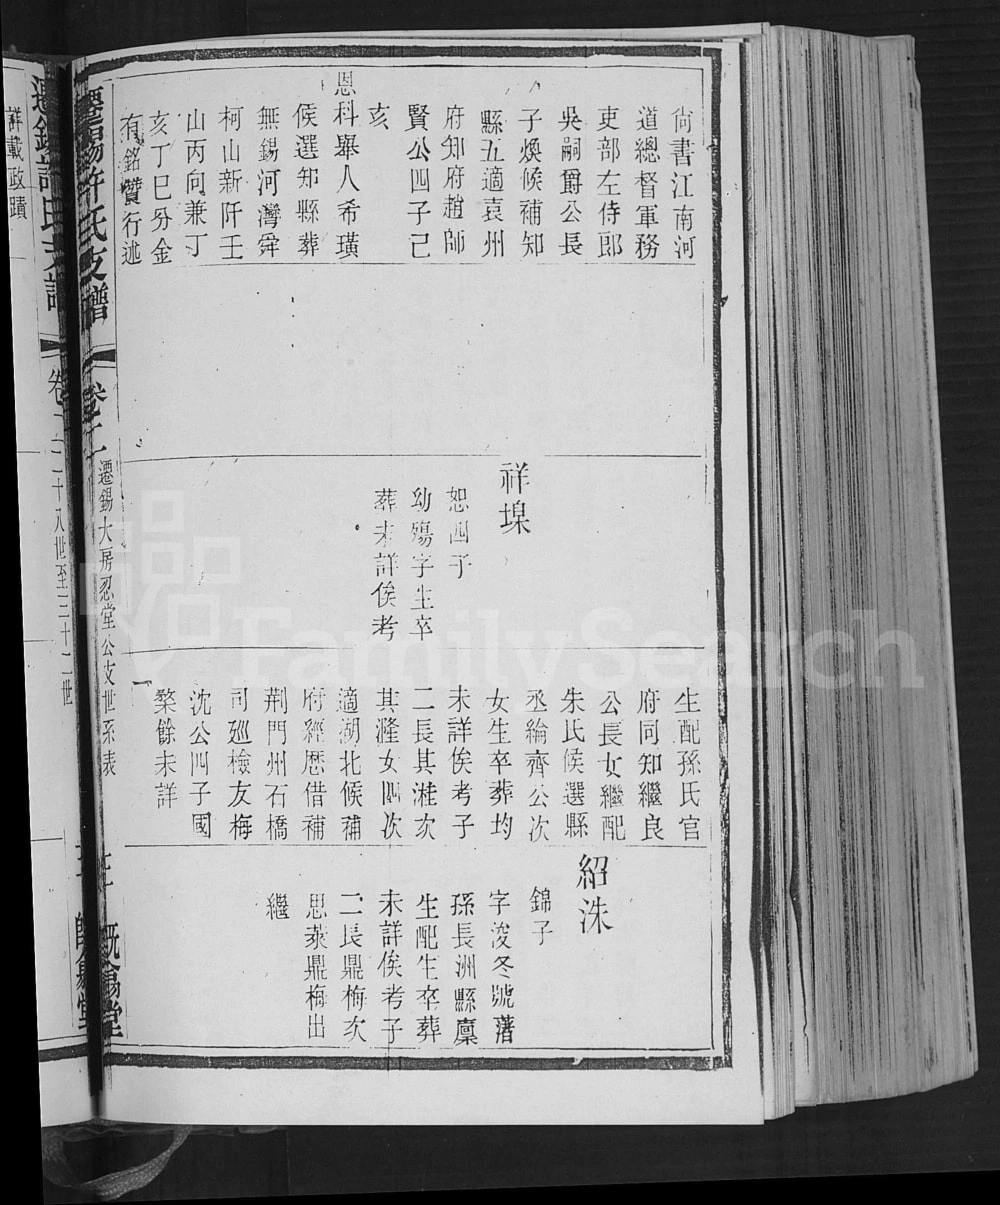 尙書江南河
道總督軍務
吏部左侍郎
吳嗣爵公長
子煥候補知
縣五適袁州
府知府趙師
賢公四子己
亥
恩科舉人希璜
候選知縣葬
無錫河灣舜
柯山新阡壬
山丙向兼丁
亥丁巳分金
有銘贊行述
祥堢
恕四子
幼殤字生卒
葬未詳俟考
生配孫氏官
府同知繼良
公長女繼配
朱氏候選縣
丞綸齊公次
女生卒葬均
未詳俟考子
二長其漼次
其漋女四次
適湖北候補
府經歷借補
荆門州石橋
司廵檢友梅
沈公四子國
棨餘未詳
紹洙
錦子
字浚冬號藩
孫長洲縣廩
生配生卒葬
未詳俟考子
二長鼎梅次
思菉鼎梅出
繼
遷錫許氏支譜
卷二
遷錫大房忍堂公支世系表
旣翕堂
遷錫許氏支譜
詳載政蹟
卷二
二十八世至三十二世
FamilySearch